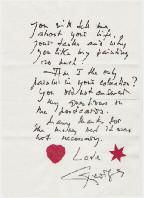 you will tell me
about your life
your tastes and why
you like my painting
so much?
— Am I the only
painter in your estimation?
You did not answer
my questions on
the postcards.
Many thanks for
the money but it was
not necessary.
Love